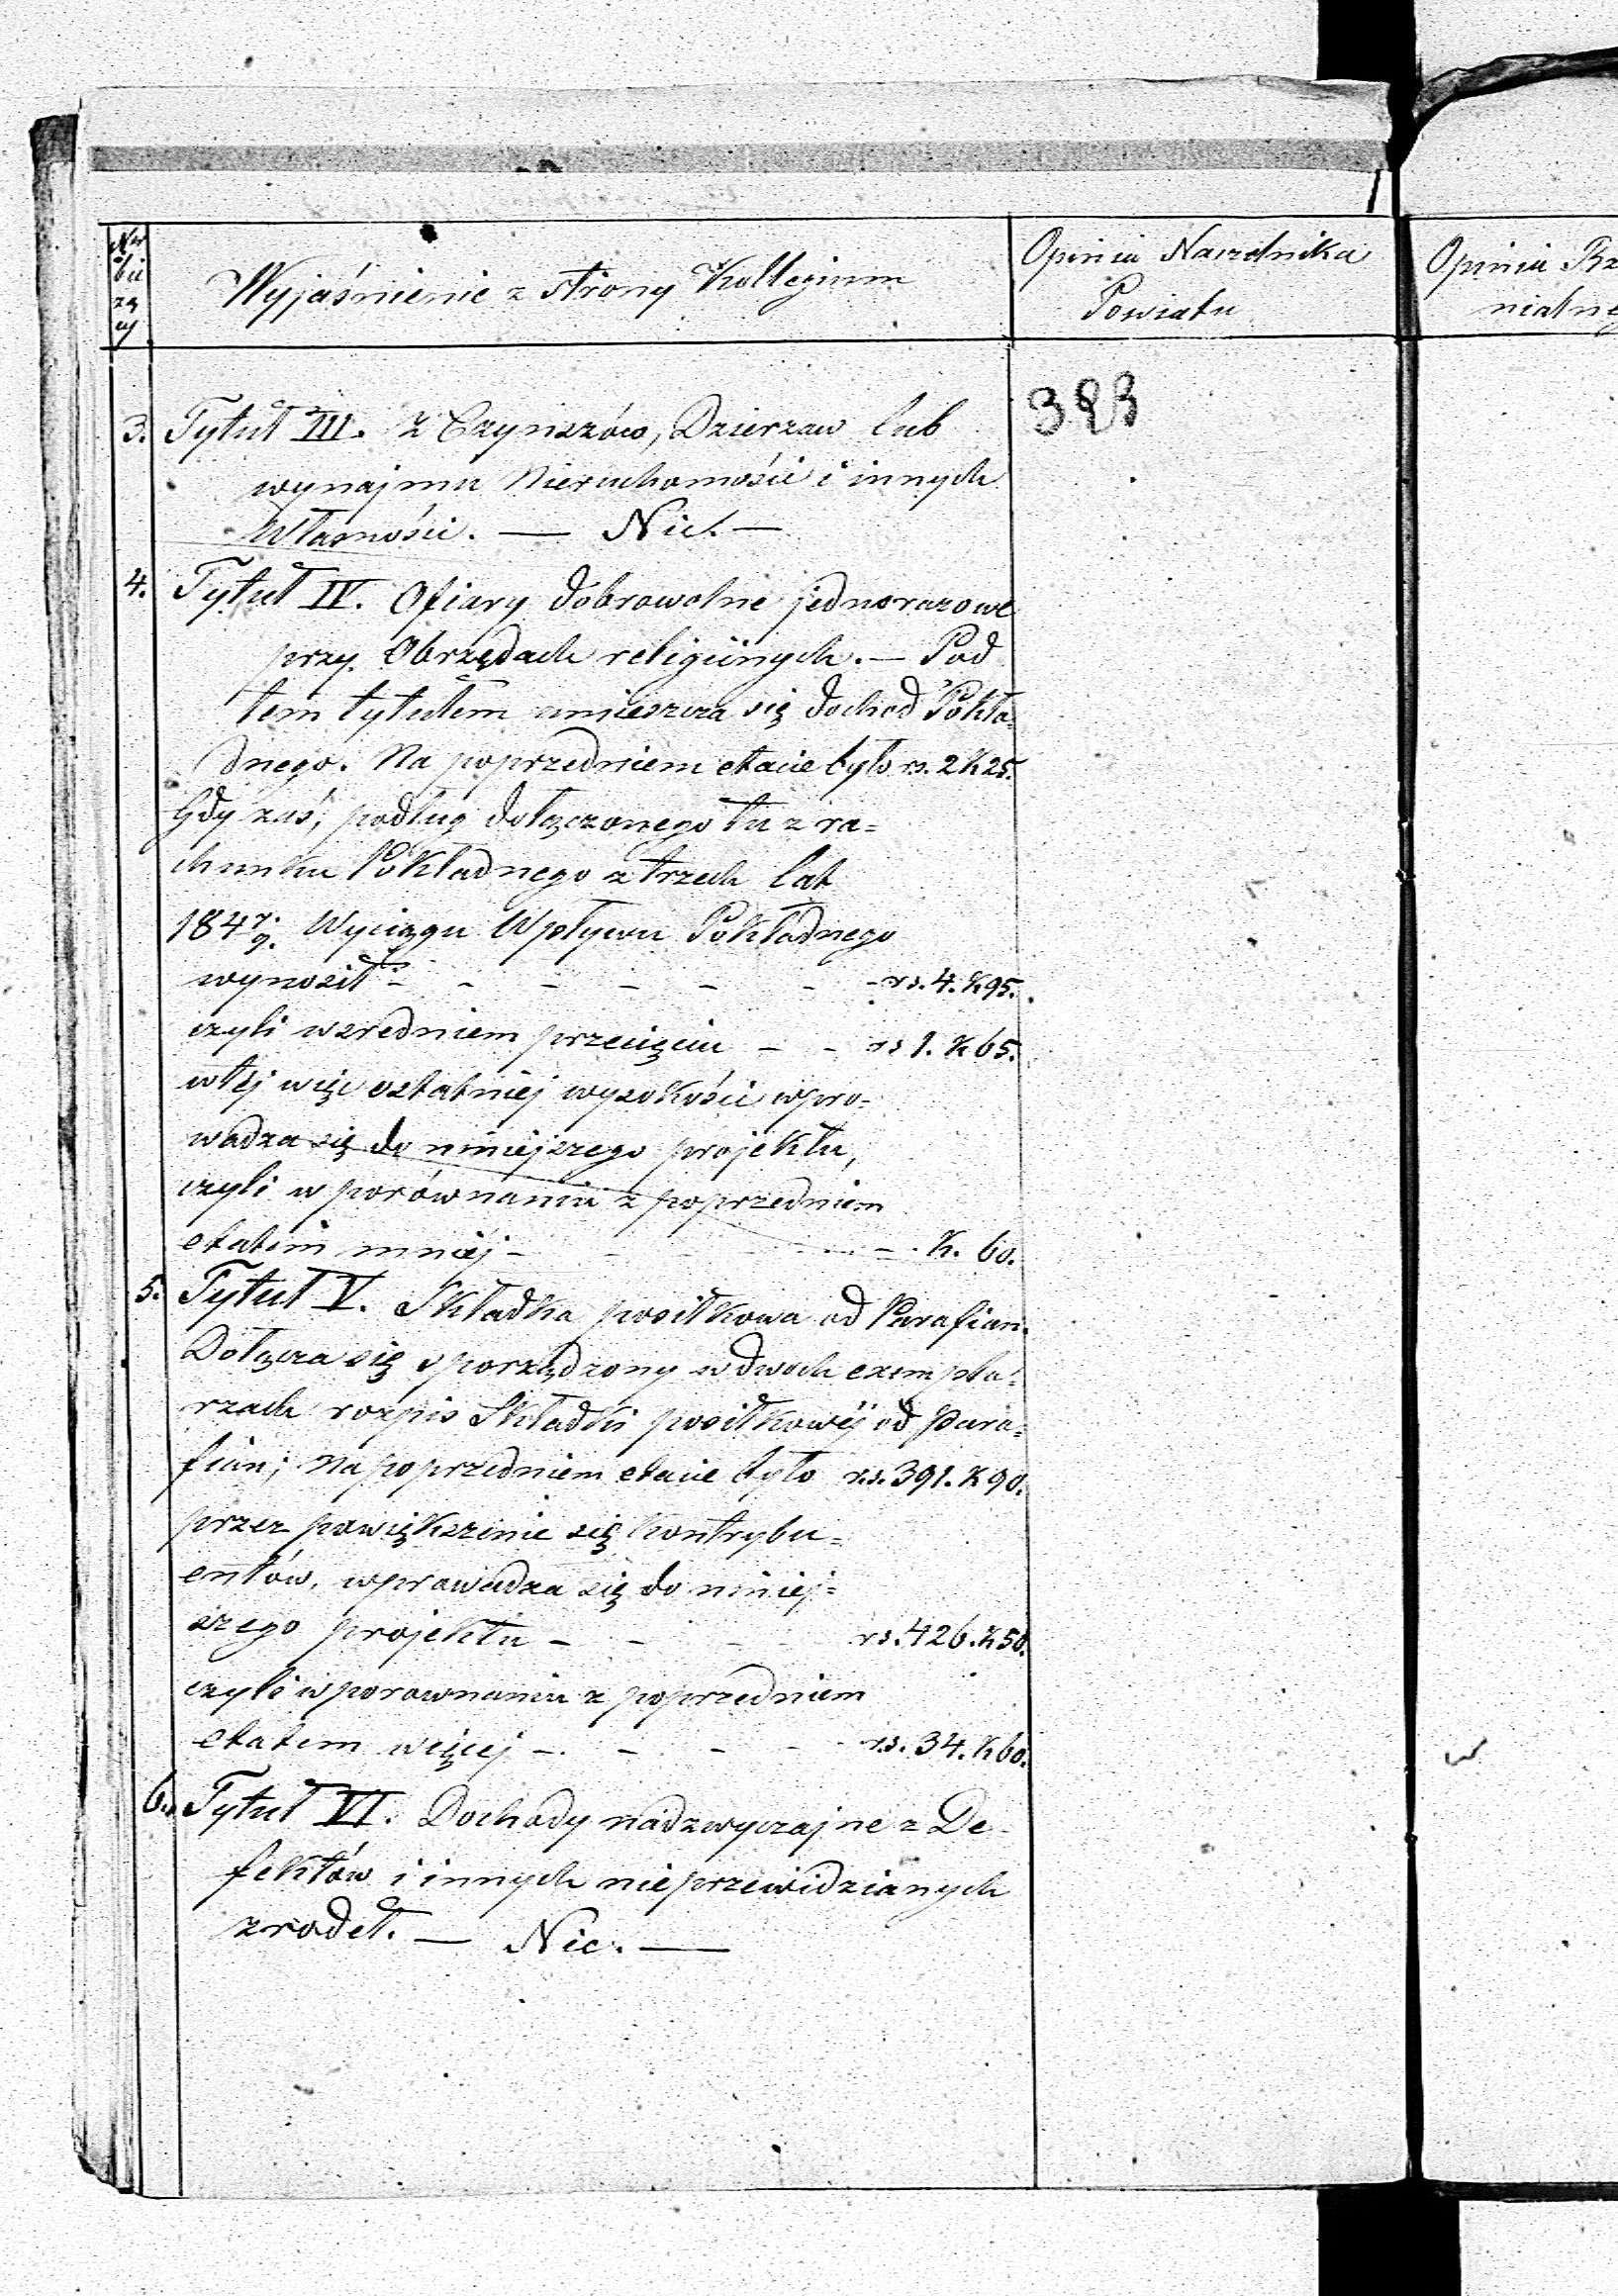 Nr
bie
żą
cy
Wyjaśnienie z strony Kollegium
Opinia Naczelnika
Powiatu
Opinia Rz
nialne
323
3. Tytuł III. Z Czynszów, Dzierzaw lub
wynajmu Nieruchomości i innych
Własności. — Nic. —
4. Tytuł IV. Ofiary dobrowolne jednorazowe
przy Obrzędach religijnych. — Pod
tem tytułem umieszcza się dochod Pokła-
dnego. Na poprzedniem etacie było rs. 2 k 25.
Gdy zaś, podług dołączonego tu z ra=
chunku Pokładnego z trzech lat
184 7/9. Wyciągu Wpływu Pokładnego
wynosił - - - - - - - rs. 4. k 95.
czyli w średniem przecięciu - - rs 1. k 65.
w tej więc ostatniej wysokości wpro=
wadza się do niniejszego projektu,
czyli w porównaniu z poprzedniem
etatem mniej - - - - - k. 60.
5. Tytuł V. Składka posiłkowa od Parafian.
Dołącza się sporządzony w dwoch exempla=
rzach rozpis Składki posiłkowéj od Para=
fian; Na poprzedniem etacie było rs. 391. k 90.
przez powiększenie się kontrybu=
entów, wprowadza się do niniej=
szego projektu - - - - rs. 426. k 50.
czyli w porownaniu z poprzedniem
etatem więcej - - - - rs. 34. k 60.
6. Tytuł VI. Dochody nadzwyczajne z De-
fektów i innych nieprzewidzianych
zrodeł. — Nic. —